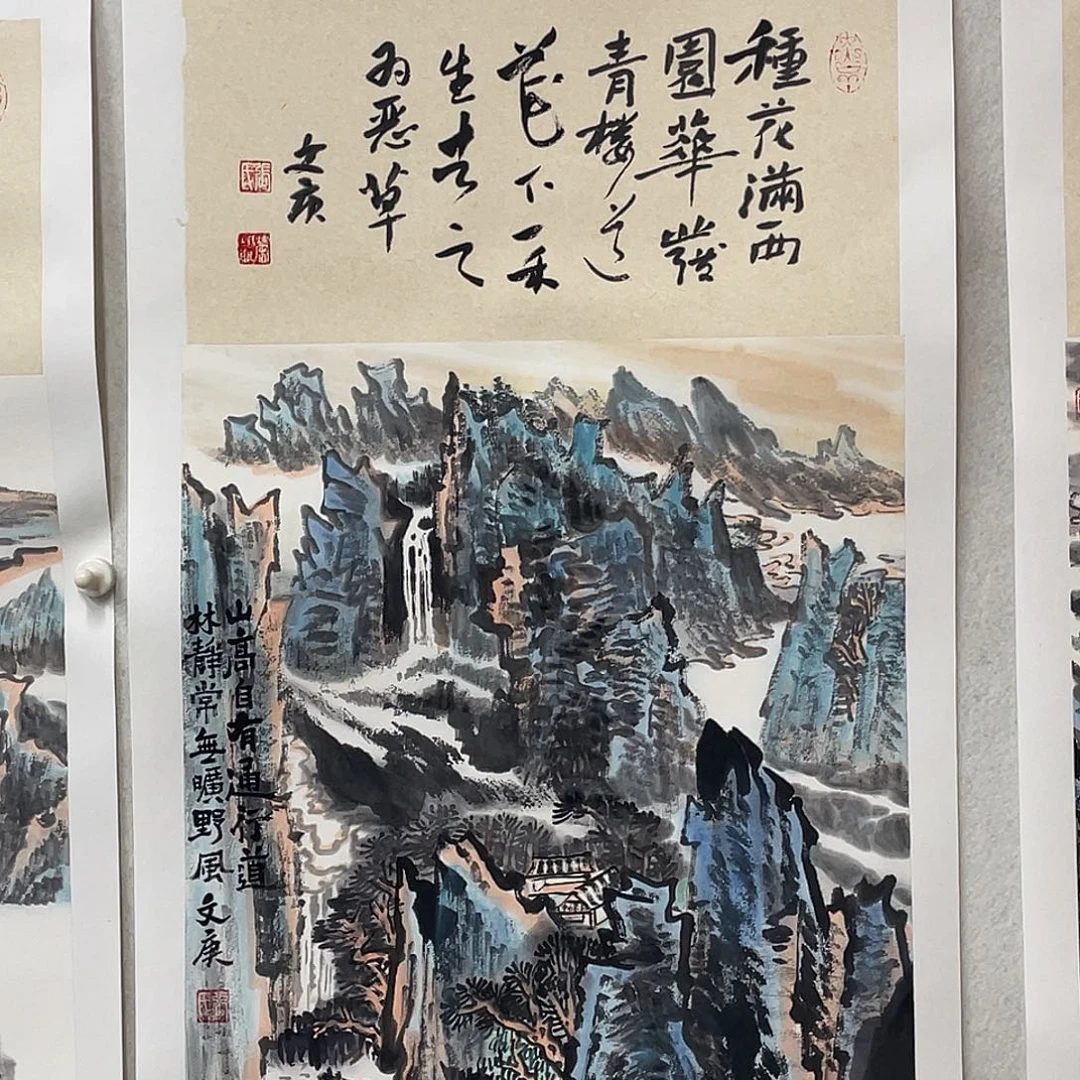 種花滿西
園華發
青樓道
花下一禾
生去之
为恶草
文庚
山高自有通行道
林靜常無曠野風
文庚